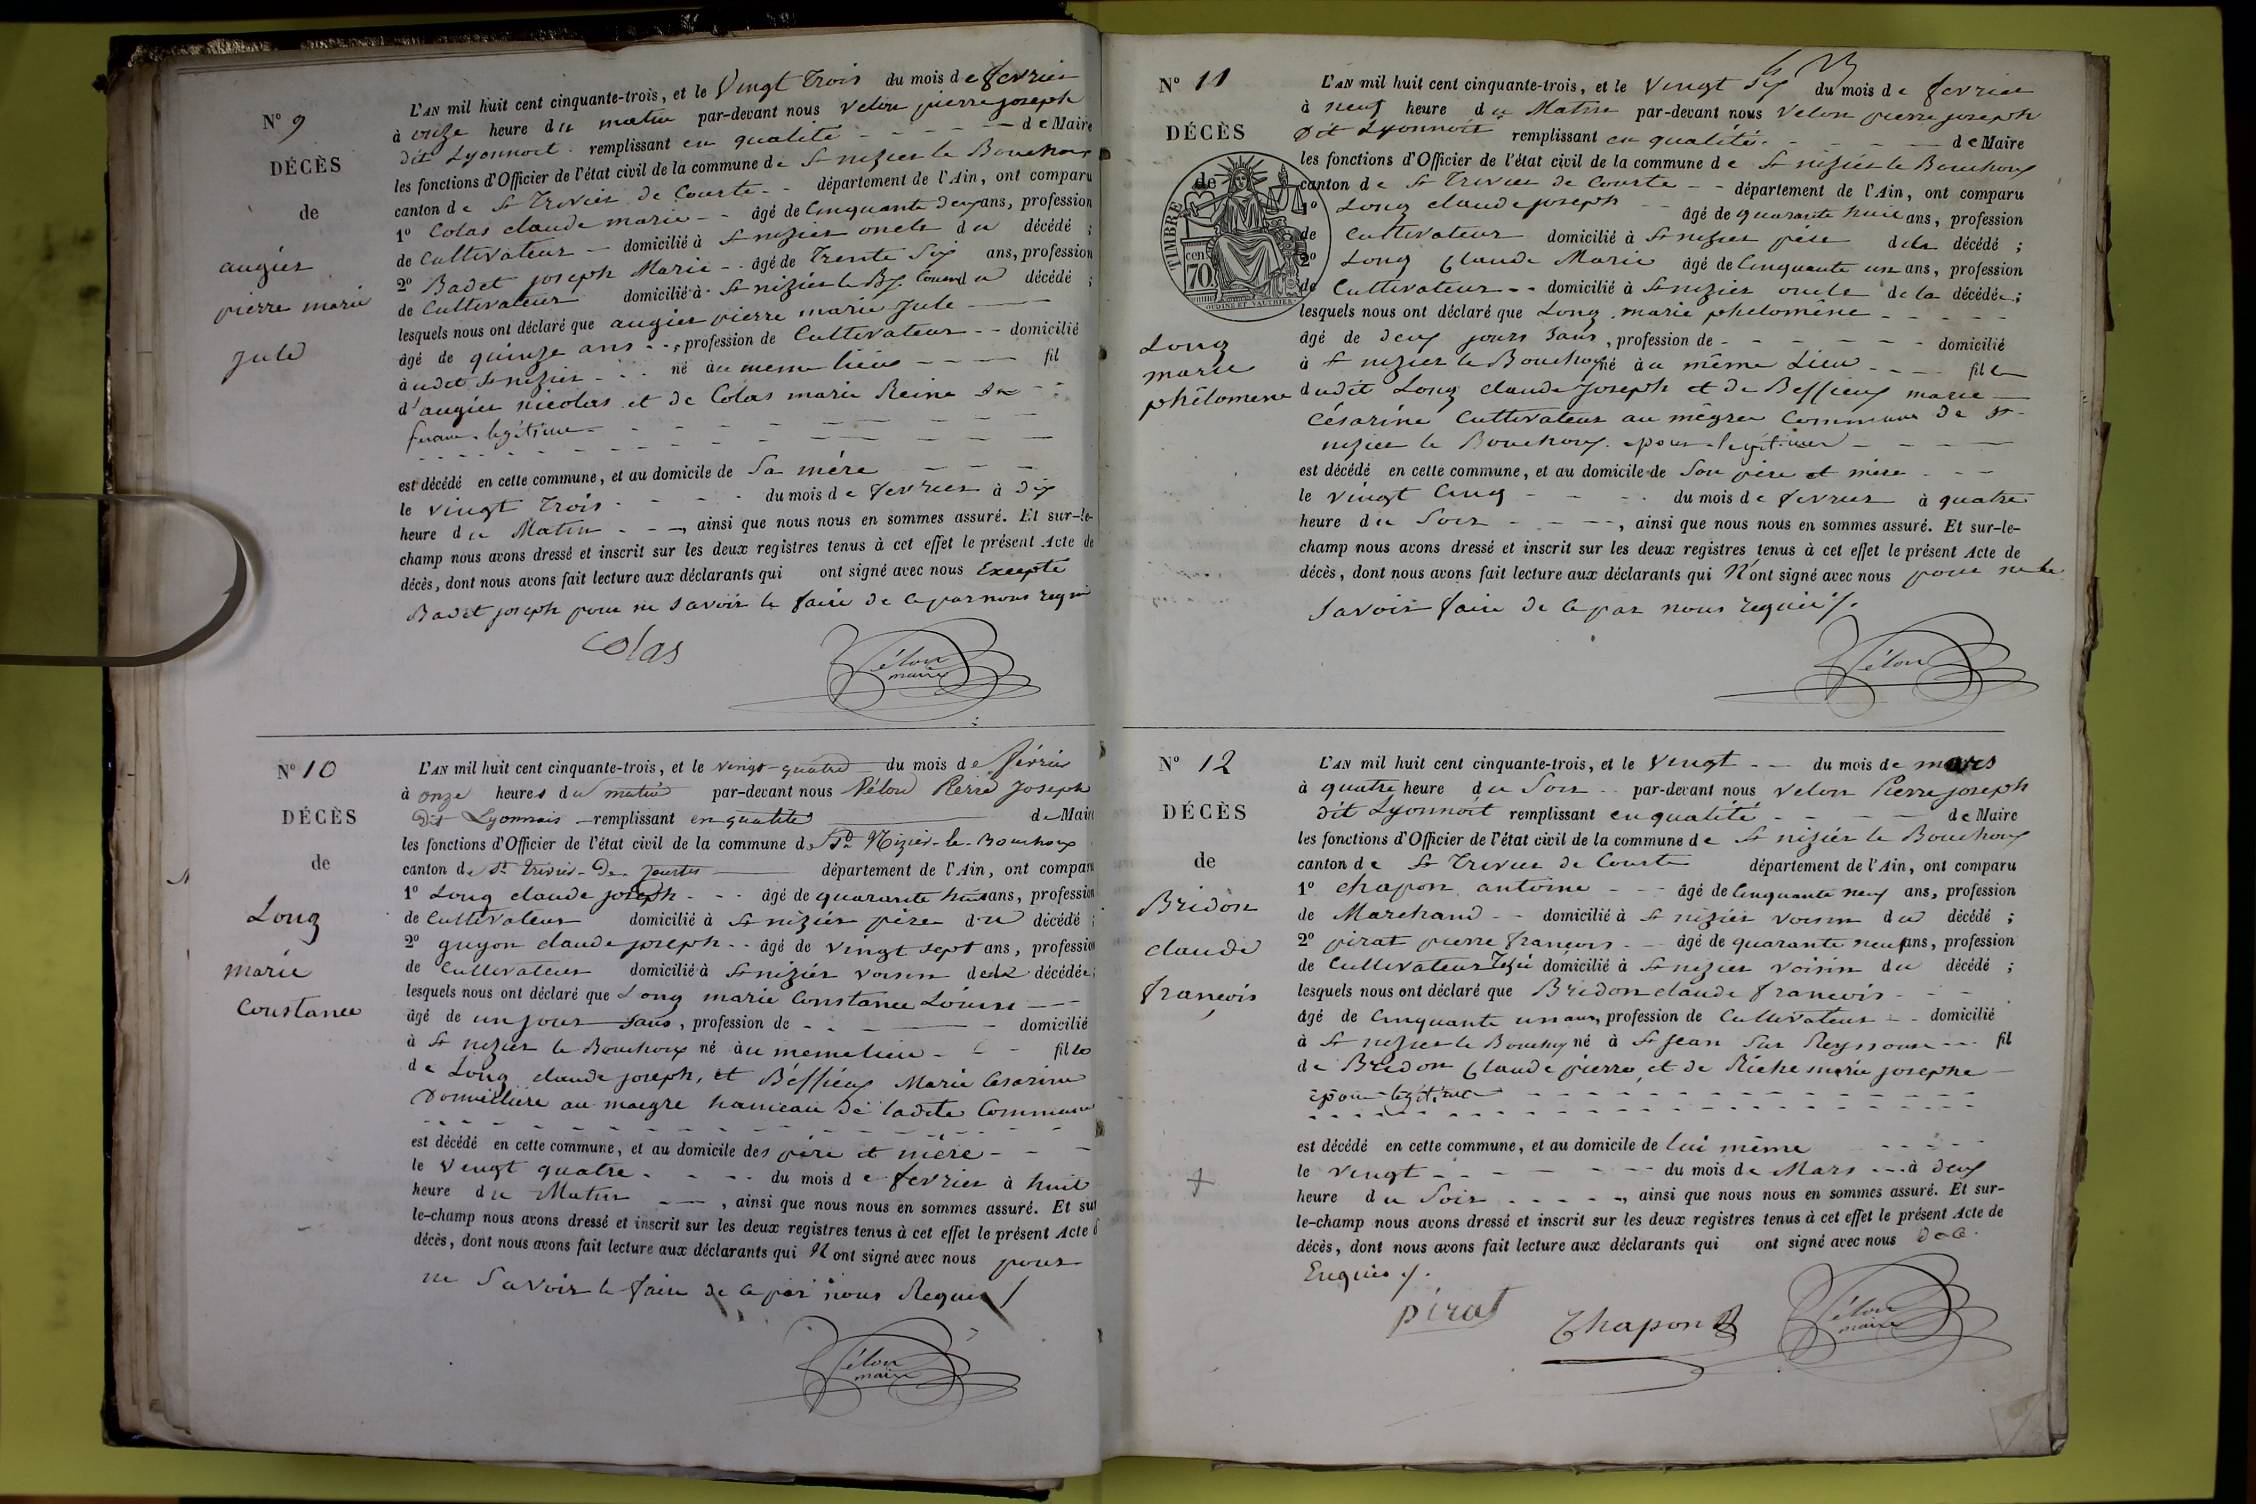 N° 9
DÉCÈS
de
augier
pierre marie
jule
L'AN mil huit cent cinquante-trois, et le Vingt Trois du mois de fevrier
à onze heure du matin par-devant nous Velon pierre joseph
dit Lyonnoit remplissant en qualité - - - - de Maire
les fonctions d'Officier de l'état civil de la commune de St nizier le Bouchoux
canton de St Trivier de Courte - - département de l'Ain, ont comparu
1° Colas claude marie - - âgé de Cinquante deux ans, profession
de Cultivateur - domicilié à St nizier oncle du décédé ;
2° Badet joseph Marie - - âgé de Trente Six ans, profession
de Cultivateur domicilié à St nizier le Bx Cousin du décédé ;
lesquels nous ont déclaré que augier pierre marie Jule
âgé de quinze ans - - , profession de Cultivateur - - domicilié
à udit St nizier - - - né au meme lieu - - - fil
d'augier nicolas et de Colas marie Reine sa - -
femme legitime - - - - - - - -
est décédé en cette commune, et au domicile de Sa mére - - -
le vingt Trois - - - - du mois de fevrier à dix
heure du Matin - - -, ainsi que nous nous en sommes assuré. Et sur-le-
champ nous avons dressé et inscrit sur les deux registres tenus à cet effet le présent Acte de
décès, dont nous avons fait lecture aux déclarants qui ont signé avec nous Excepté
Badet joseph pour ne savoir le faire de ce par nous requi
Colas
Vélon
maire
N° 10
DÉCÈS
de
Long
marie
Constance
L'AN mil huit cent cinquante-trois, et le vingt-quatre du mois de février
à onze heures du matin par-devant nous Vélon Pierre Joseph
dit Lyonnais - remplissant en qualité de Maire
les fonctions d'Officier de l'état civil de la commune de St Nizier-le-Bouchoux
canton de St trivier-De-Courtes département de l'Ain, ont comparu
1° Long claude joseph - - - âgé de quarante huit ans, profession
de Cultivateur domicilié à St nizier père du décédé ;
2° guyon claude joseph - - âgé de vingt sept ans, profession
de Cultivateur domicilié à St nizier voisin de la décédée ;
lesquels nous ont déclaré que Long marie Constance Louise - - -
âgé de un jour sans, profession de - - - - - domicilié
à St nizier le Bouchoux né àu meme lieu - - - fille
de Long claude joseph, et Béffieux Marie Cesarine
Domicilière au maegre hameau de ladite Commune
est décédé en cette commune, et au domicile des père et mére - - -
le Vingt quatre - - - - du mois de fevrier à huit
heure du Matin - - -, ainsi que nous nous en sommes assuré. Et sur
le-champ nous avons dressé et inscrit sur les deux registres tenus à cet effet le présent Acte d
décès, dont nous avons fait lecture aux déclarants qui N'ont signé avec nous pour
ne Savoir le faire de ce par nous Requis /
Vélon
maire
N° 11
DÉCÈS
de
TIMBRE
cen
70
OUDINE ET VAUTHIER
Long
marie
phélomene
L'AN mil huit cent cinquante-trois, et le Vingt Six du mois de fevrier
à neuf heure du Matin par-devant nous Velon pierre joseph
Dit Lyonnoit remplissant en qualité - - - - de Maire
les fonctions d'Officier de l'état civil de la commune de St nizier le Bouchoux
canton de St Trivier de Courte - - département de l'Ain, ont comparu
1° Long claude joseph - - âgé de quarante huit ans, profession
de Cultivateur domicilié à St nizier père de la décédé ;
2° Long Claude Marie âgé de Cinquante un ans, profession
de Cultivateur - - domicilié à St nizier oncle de la décédée ;
lesquels nous ont déclaré que Long marie phelomène - - - - -
âgé de deux jours sans, profession de - - - - - - domicilié
à St nizier le Bouchoux né àu même Lieu - - - fille
dudit Long claude Joseph et de Beffieux marie
Césarine Cultivateur au mêgree Commune de St
nizier le Bouchoux epoux legitimes - - - -
est décédé en cette commune, et au domicile de Son père et mère - - -
le vingt Cinq - - - - du mois de fevrier à quatre
heure du Soir - - - -, ainsi que nous nous en sommes assuré. Et sur-le-
champ nous avons dressé et inscrit sur les deux registres tenus à cet effet le présent Acte de
décès, dont nous avons fait lecture aux déclarants qui N'ont signé avec nous pour ne le
savoir faire de ce par nous requis /.
Vélon
N° 12
DÉCÈS
de
Bridon
claude
francois
L'AN mil huit cent cinquante-trois, et le Vingt - - du mois de mars
à quatre heure du Soir - - par-devant nous Velon Pierre joseph
dit Lyonnoit remplissant en qualité - - - - de Maire
les fonctions d'Officier de l'état civil de la commune de St nizier le Bouchoux
canton de St Trivier de Courte département de l'Ain, ont comparu
1° chapon antoine - - - âgé de Cinquante neuf ans, profession
de Marchand - - domicilié à St nizier voisin du décédé ;
2° pirat pierre francois - - âgé de quarante neuf ans, profession
de Cultivateur domicilié à St nizier voisin du décédé ;
lesquels nous ont déclaré que Bridon claude francois - - -
âgé de Cinquante un ans, profession de Cultivateur - - domicilié
à St nizier le Bouchoux né à St Jean Sur Reyssouze - - fil
de Bridon Claude pierre, et de Riche marie josephe
epoux légitime - - - - - - - -
est décédé en cette commune, et au domicile de lui même - - - - -
le Vingt - - - - - - du mois de Mars - - - à deux
heure du Soir - - - - -, ainsi que nous nous en sommes assuré. Et sur-
le-champ nous avons dressé et inscrit sur les deux registres tenus à cet effet le présent Acte de
décès, dont nous avons fait lecture aux déclarants qui ont signé avec nous de ce
Enquis /.
pirat
Chapon
Vélon
maire